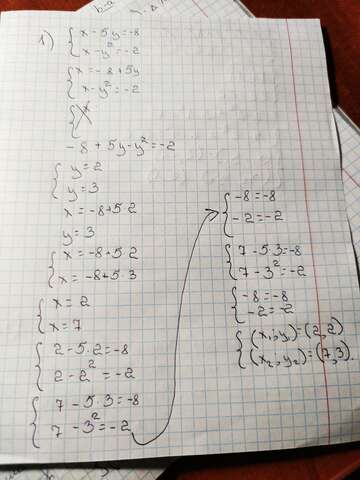 1) { x - 5y = -8
x - y² = -2
{ x = -8 + 5y
x - y² = -2
{ x
-8 + 5y - y² = -2
{ y = 2
y = 3
x = -8 + 5·2
y = 3
{ x = -8 + 5·2
x = -8 + 5·3
{ x = 2
x = 7
{ 2 - 5·2 = -8
2 - 2² = -2
{ 7 - 5·3 = -8
7 - 3² = -2
{ -8 = -8
-2 = -2
{ 7 - 5·3 = -8
7 - 3² = -2
{ -8 = -8
-2 = -2
{ (x₁, y₁) = (2, 2)
(x₂, y₂) = (7, 3).